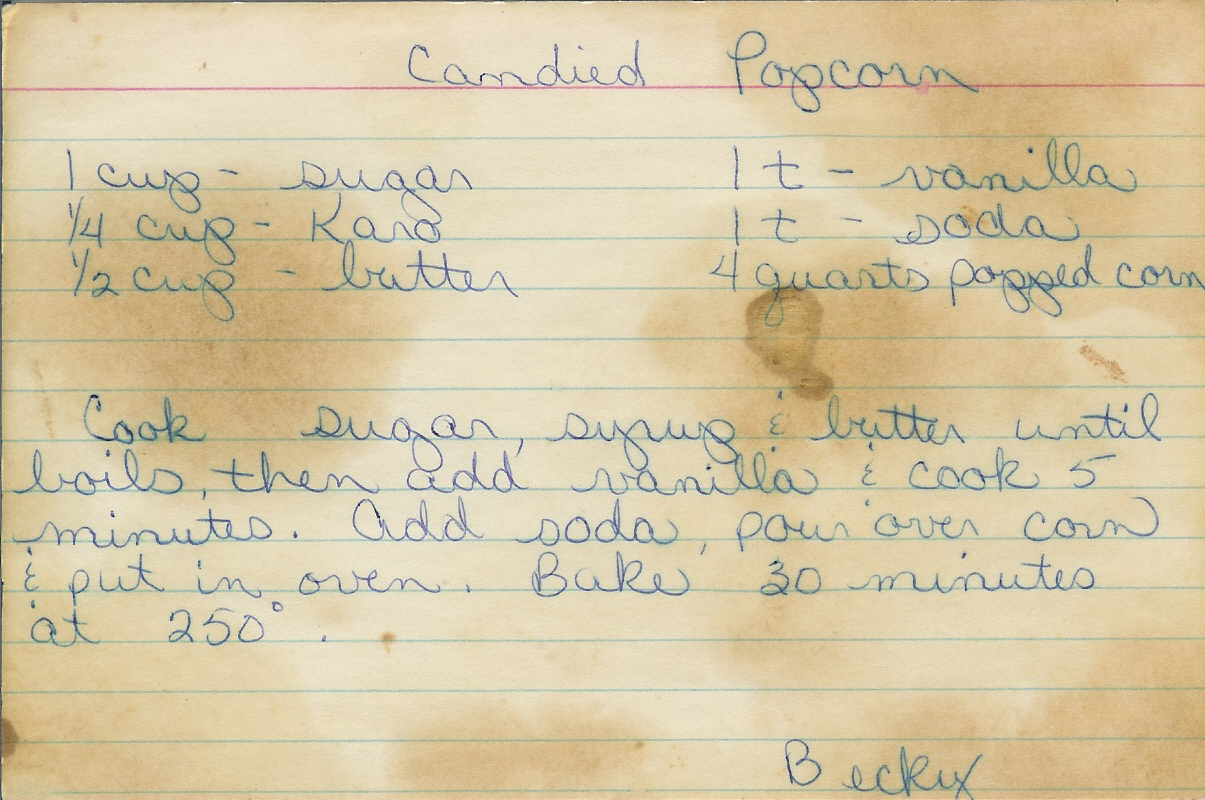 Candied Popcorn
1 cup - sugar 1 t - vanilla
1/4 cup - Karo 1 t - soda
1/2 cup - butter 4 quarts popped corn
Cook sugar, syrup & butter until
boils, then add vanilla & cook 5
minutes. Add soda, pour over corn
& put in oven. Bake 30 minutes
at 250°.
Becky